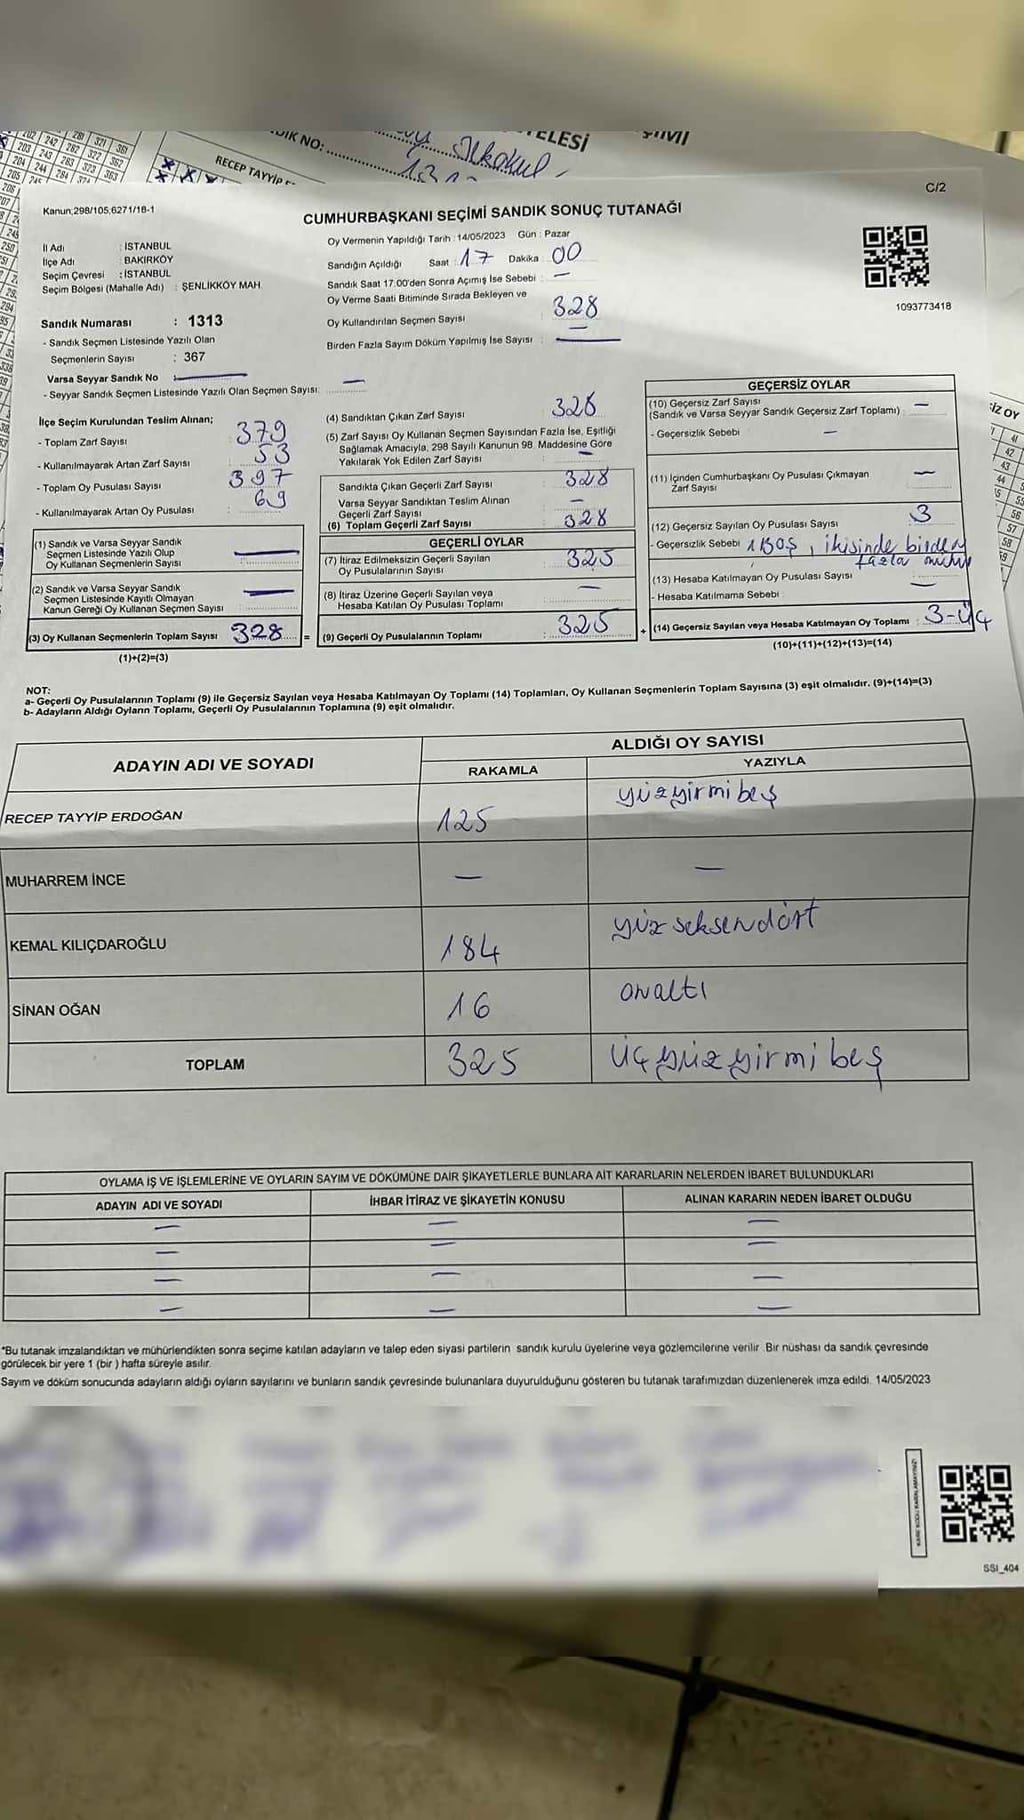 DIK NO:
TELESİ
ŞIMI
İlkokul
RECEP TAYYİP
C/2
Kanun;298/105,6271/18-1
CUMHURBAŞKANI SEÇİMİ SANDIK SONUÇ TUTANAĞI
İl Adı : İSTANBUL
İlçe Adı : BAKIRKÖY
Seçim Çevresi : İSTANBUL
Seçim Bölgesi (Mahalle Adı) : ŞENLİKKÖY MAH.
Oy Vermenin Yapıldığı Tarih : 14/05/2023 Gün : Pazar
Sandığın Açıldığı Saat : 17 Dakika : 00
Sandık Saat 17.00'den Sonra Açımış İse Sebebi : —
Oy Verme Saati Bitiminde Sırada Bekleyen ve
Oy Kullandırılan Seçmen Sayısı : 328
Birden Fazla Sayım Döküm Yapılmış İse Sayısı : —
1093773418
Sandık Numarası : 1313
- Sandık Seçmen Listesinde Yazılı Olan
Seçmenlerin Sayısı : 367
Varsa Seyyar Sandık No : —
- Seyyar Sandık Seçmen Listesinde Yazılı Olan Seçmen Sayısı: —
İlçe Seçim Kurulundan Teslim Alınan;
- Toplam Zarf Sayısı : 379
- Kullanılmayarak Artan Zarf Sayısı : 53
- Toplam Oy Pusulası Sayısı : 397
- Kullanılmayarak Artan Oy Pusulası : 69
(1) Sandık ve Varsa Seyyar Sandık
Seçmen Listesinde Yazılı Olup
Oy Kullanan Seçmenlerin Sayısı : —
(2) Sandık ve Varsa Seyyar Sandık
Seçmen Listesinde Kayıtlı Olmayan
Kanun Gereği Oy Kullanan Seçmen Sayısı : —
(3) Oy Kullanan Seçmenlerin Toplam Sayısı 328 =
(1)+(2)=(3)
(4) Sandıktan Çıkan Zarf Sayısı : 328
(5) Zarf Sayısı Oy Kullanan Seçmen Sayısından Fazla İse, Eşitliği
Sağlamak Amacıyla, 298 Sayılı Kanunun 98. Maddesine Göre
Yakılarak Yok Edilen Zarf Sayısı : —
Sandıkta Çıkan Geçerli Zarf Sayısı : 328
Varsa Seyyar Sandıktan Teslim Alınan
Geçerli Zarf Sayısı : —
(6) Toplam Geçerli Zarf Sayısı : 328
GEÇERLİ OYLAR
(7) İtiraz Edilmeksizin Geçerli Sayılan
Oy Pusulalarının Sayısı : 325
(8) İtiraz Üzerine Geçerli Sayılan veya
Hesaba Katılan Oy Pusulası Toplamı : —
(9) Geçerli Oy Pusulalarının Toplamı : 325 +
GEÇERSİZ OYLAR
(10) Geçersiz Zarf Sayısı
(Sandık ve Varsa Seyyar Sandık Geçersiz Zarf Toplamı) : —
- Geçersizlik Sebebi : —
(11) İçinden Cumhurbaşkanı Oy Pusulası Çıkmayan
Zarf Sayısı : —
(12) Geçersiz Sayılan Oy Pusulası Sayısı : 3
- Geçersizlik Sebebi 1 BOŞ, ikisinde birden
fazla mühür
(13) Hesaba Katılmayan Oy Pusulası Sayısı : —
- Hesaba Katılmama Sebebi :
(14) Geçersiz Sayılan veya Hesaba Katılmayan Oy Toplamı : 3-üç
(10)+(11)+(12)+(13)=(14)
NOT:
a- Geçerli Oy Pusulalarının Toplamı (9) ile Geçersiz Sayılan veya Hesaba Katılmayan Oy Toplamı (14) Toplamları, Oy Kullanan Seçmenlerin Toplam Sayısına (3) eşit olmalıdır. (9)+(14)=(3)
b- Adayların Aldığı Oyların Toplamı, Geçerli Oy Pusulalarının Toplamına (9) eşit olmalıdır.
ADAYIN ADI VE SOYADI
ALDIĞI OY SAYISI
RAKAMLA YAZIYLA
RECEP TAYYİP ERDOĞAN 125 yüzyirmibeş
MUHARREM İNCE — —
KEMAL KILIÇDAROĞLU 184 yüzseksendört
SİNAN OĞAN 16 onaltı
TOPLAM 325 üçyüzyirmibeş
OYLAMA İŞ VE İŞLEMLERİNE VE OYLARIN SAYIM VE DÖKÜMÜNE DAİR ŞİKAYETLERLE BUNLARA AİT KARARLARIN NELERDEN İBARET BULUNDUKLARI
ADAYIN ADI VE SOYADI İHBAR İTİRAZ VE ŞİKAYETİN KONUSU ALINAN KARARIN NEDEN İBARET OLDUĞU
— — —
— — —
— — —
— — —
*Bu tutanak imzalandıktan ve mühürlendikten sonra seçime katılan adayların ve talep eden siyasi partilerin sandık kurulu üyelerine veya gözlemcilerine verilir. Bir nüshası da sandık çevresinde
görülecek bir yere 1 (bir ) hafta süreyle asılır.
Sayım ve döküm sonucunda adayların aldığı oyların sayılarını ve bunların sandık çevresinde bulunanlara duyurulduğunu gösteren bu tutanak tarafımızdan düzenlenerek imza edildi. 14/05/2023
KARE KODU KARALAMAYINIZ!
SSI_404